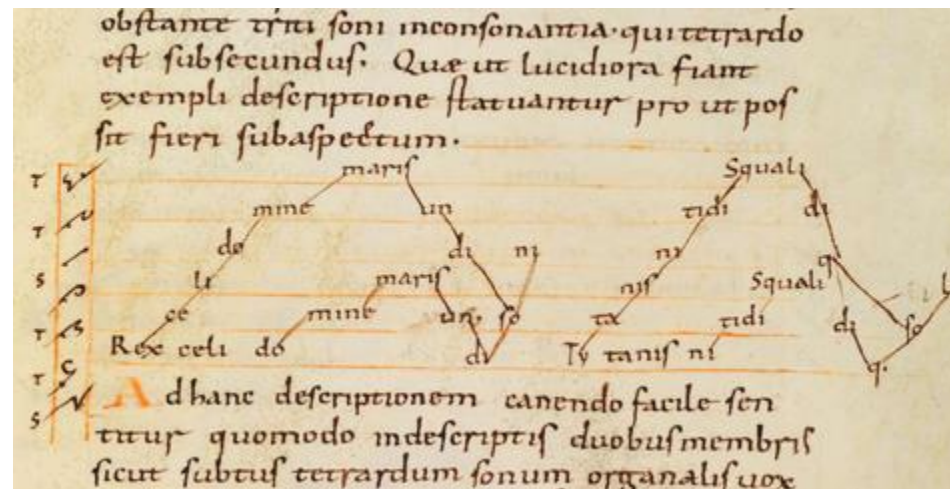 obstante triti soni inconsonantia· qui tetrardo
est subsecundus· Quæ ut lucidiora fiant
exempli descriptione statuantur pro ut pos
sit fieri sub aspectum·
T maris Squali
mine un tidi di
T do di ni ni q
S li maris nis Squali
T ce mine un· so ta tidi di so
T Rex celi do di Ty tanis ni q·
S
Ad hanc descriptionem canendo facile sen
titur quomodo in descriptis duobus membris
sicut subtus tetrardum sonum organalis vox